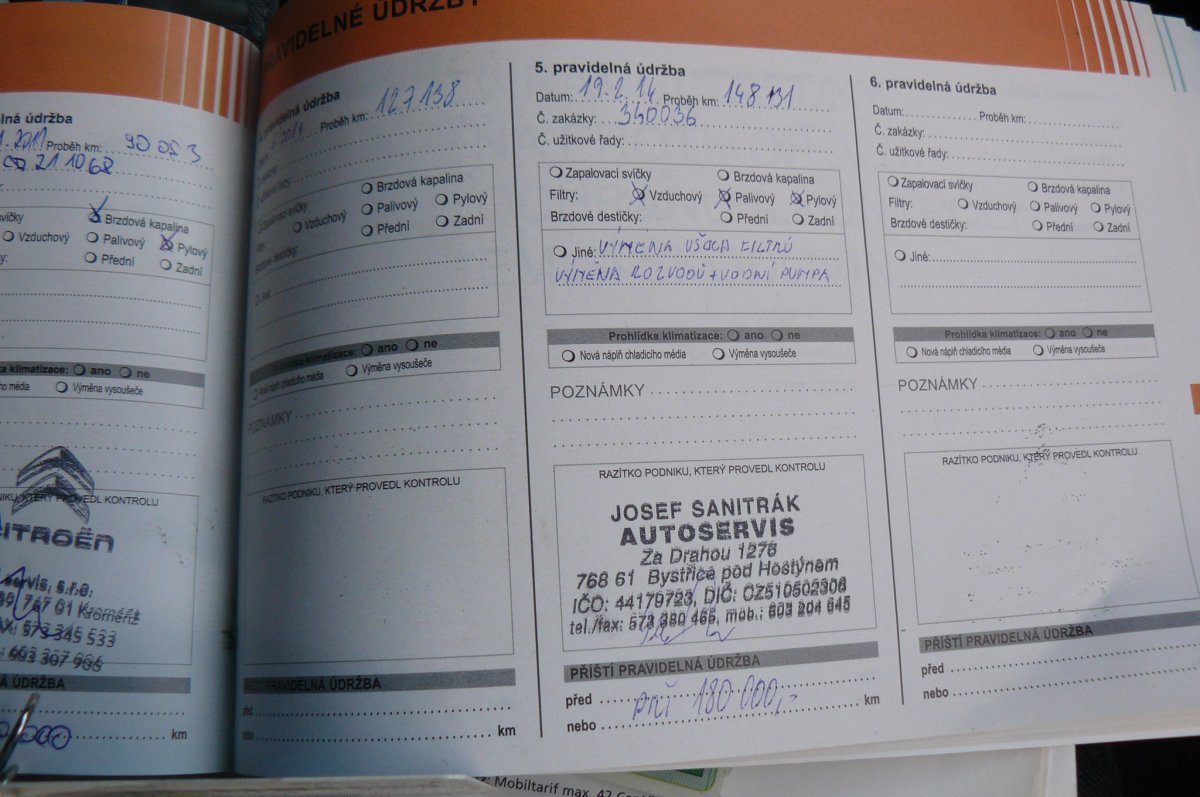 PRAVIDELNÉ ÚDRŽBY
lná údržba
Proběh km: 90 053
211068
svíčky Brzdová kapalina
Vzduchový Palivový Pylový
Přední Zadní
klimatizace: ano ne
ího média Výměna vysoušeče
NIKU, KTERÝ PROVEDL KONTROLU
CITROËN
servis, s.r.o.
767 01 Kroměříž
FAX: 573 345 533
603 307 906
NÁ ÚDRŽBA
km
pravidelná údržba
Proběh km: 127.138
Zapalovací svíčky Brzdová kapalina
Vzduchový Palivový Pylový
Brzdové destičky: Přední Zadní
Jiné:
Prohlídka klimatizace: ano ne
Nová náplň chladicího média Výměna vysoušeče
POZNÁMKY
RAZÍTKO PODNIKU, KTERÝ PROVEDL KONTROLU
PRAVIDELNÁ ÚDRŽBA
před
nebo km
5. pravidelná údržba
Datum: 19.2.14 Proběh km: 148 131
Č. zakázky: 340036
Č. užitkové řady:
Zapalovací svíčky Brzdová kapalina
Filtry: Vzduchový Palivový Pylový
Brzdové destičky: Přední Zadní
Jiné: VÝMĚNA VŠECH FILTRŮ
VÝMĚNA ROZVODŮ + VODNÍ PUMPA
Prohlídka klimatizace: ano ne
Nová náplň chladicího média Výměna vysoušeče
POZNÁMKY
RAZÍTKO PODNIKU, KTERÝ PROVEDL KONTROLU
JOSEF SANITRÁK
AUTOSERVIS
Za Drahou 1276
768 61 Bystřice pod Hostýnem
IČO: 44179723, DIČ: CZ510502306
tel./fax: 573 380 465, mob.: 603 204 645
PŘÍŠTÍ PRAVIDELNÁ ÚDRŽBA
před
nebo při 180 000,- km
6. pravidelná údržba
Datum: Proběh km:
Č. zakázky:
Č. užitkové řady:
Zapalovací svíčky Brzdová kapalina
Filtry: Vzduchový Palivový Pylový
Brzdové destičky: Přední Zadní
Jiné:
Prohlídka klimatizace: ano ne
Nová náplň chladicího média Výměna vysoušeče
POZNÁMKY
RAZÍTKO PODNIKU, KTERÝ PROVEDL KONTROLU
PŘÍŠTÍ PRAVIDELNÁ ÚDRŽBA
před
nebo
Mobiltarif max. 42